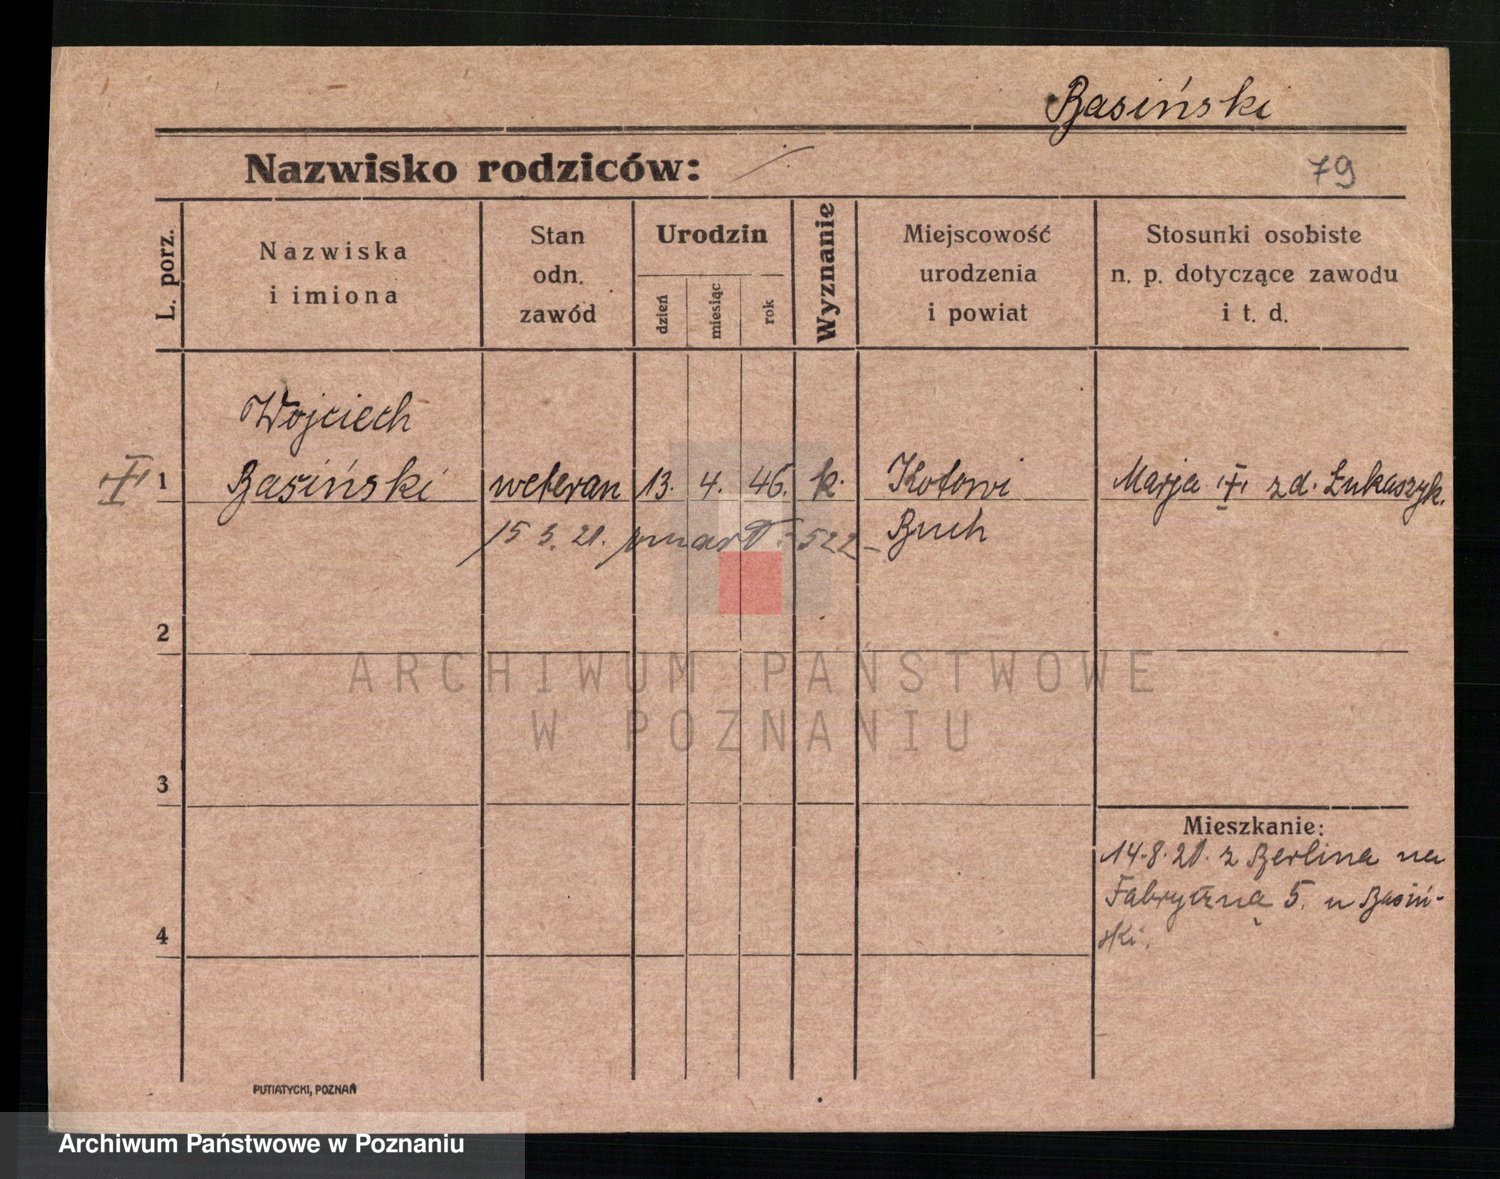 Basiński
Nazwisko rodziców: /
79
L. porz.
Nazwiska
i imiona
Stan
odn.
zawód
Urodzin
dzień
miesiąc
rok
Wyznanie
Miejscowość
urodzenia
i powiat
Stosunki osobiste
n. p. dotyczące zawodu
i t. d.
Wojciech
1 Basiński weteran 13. 4. 46. k. Kotowi Marja zd. Łukaszyk.
15 3. 21. zmarł: 522 Buch
2
3
4
Mieszkanie:
14.8.20. z Berlina na
Fabryczną 5. u Basiń-
ski.
PUTIATYCKI, POZNAŃ
ARCHIWUM PAŃSTWOWE
W POZNANIU
Archiwum Państwowe w Poznaniu